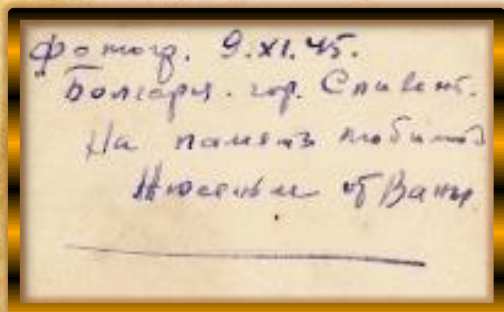 Фотогр. 9.XI.45.
Болгария. гор. Сливен.
На память любимой
Нюсеньке от Вани.